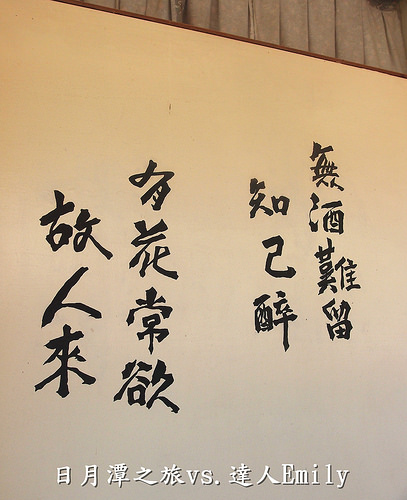 無酒難留
知己醉
有花常欲
故人來
日月潭之旅vs.達人Emily